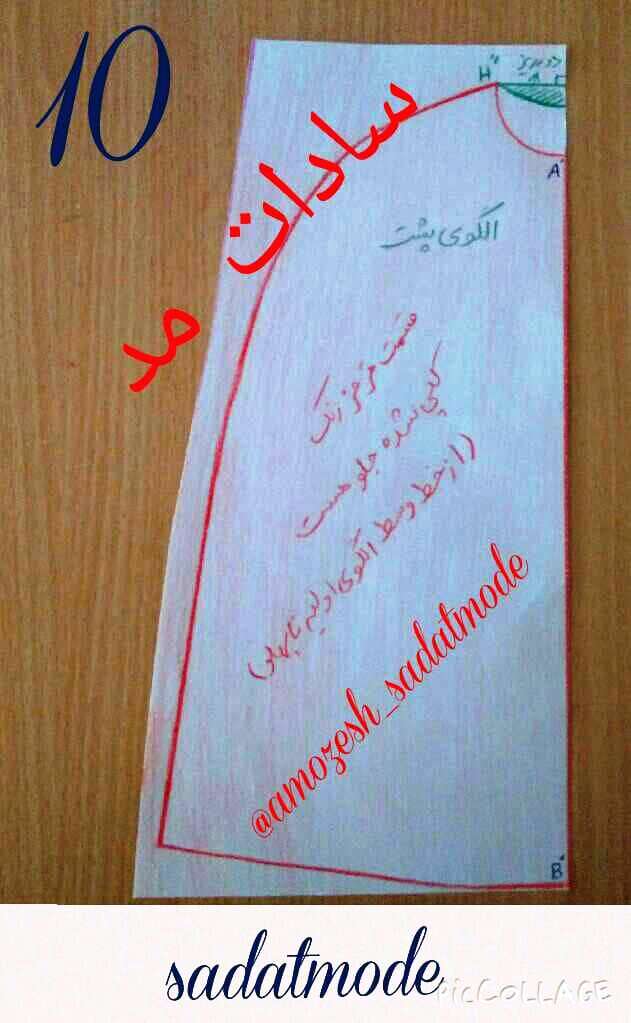 10
H"
A'
سادات مد
الگوی پشت
قسمت قرمز رنگ
کپی شده جلو هست
(از خط وسط الگوی اولیه تا پهلو)
@amozesh_sadatmode
B'
sadatmode
PIC COLLAGE